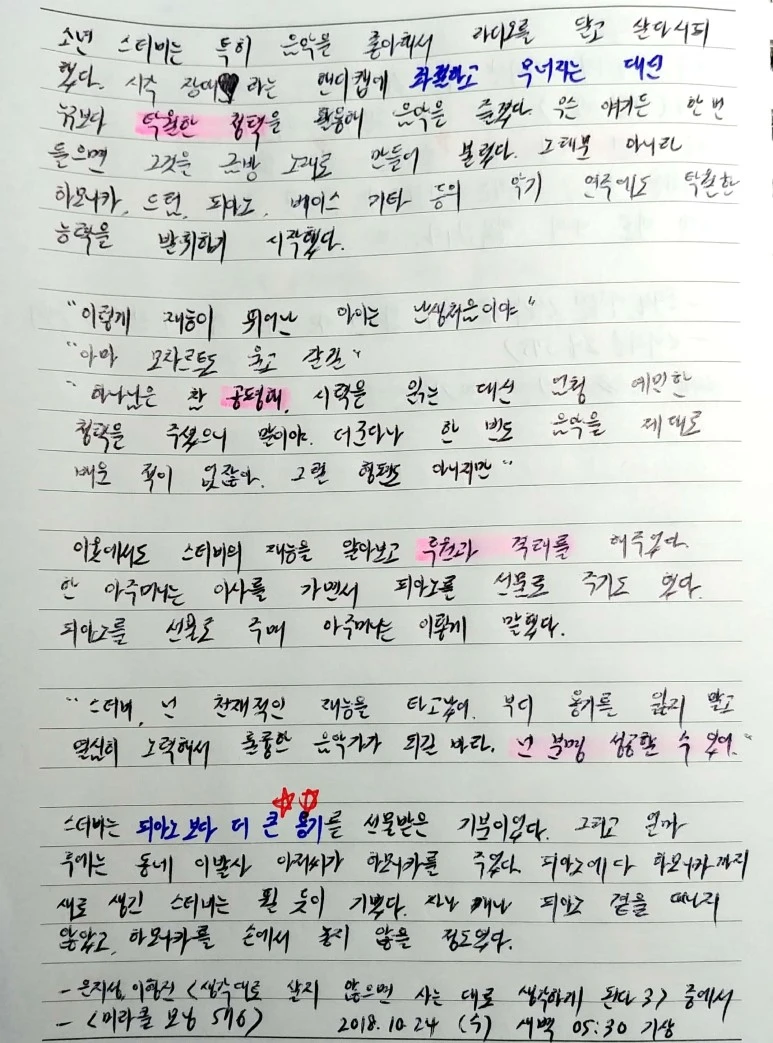 소년 스티비는 특히 음악을 좋아해서 라디오를 달고 살다시피
했다. 시각 장애 라는 핸디캡에 좌절하고 무너지는 대신
누구보다 탁월한 청력을 활용해 음악을 즐겼다. 무슨 얘기든 한 번
들으면 그것을 금방 노래로 만들어 불렀다. 그 뿐 아니라
하모니카, 드럼, 피아노, 베이스 기타 등의 악기 연주에도 탁월한
능력을 발휘하기 시작했다.
"이렇게 재능이 뛰어난 아이는 난생처음이야"
"아마 모차르트도 울고 갈걸"
"하나님은 참 공평해. 시력을 잃는 대신 엄청 예민한
청력을 주셨으니 말이야. 더군다나 한 번도 음악을 제대로
배운 적이 없잖아. 그럴 형편도 아니지만"
이웃에서도 스티비의 재능을 알아보고 후원과 격려를 해주었다.
한 아주머니는 이사를 가면서 피아노를 선물로 주기도 했다.
피아노를 선물로 주며 아주머니는 이렇게 말했다.
"스티비, 넌 천재적인 재능을 타고났어. 부디 용기를 잃지 말고
열심히 노력해서 훌륭한 음악가가 되길 바라. 넌 분명 성공할 수 있어."
스티비는 피아노보다 더 큰 용기를 선물받은 기분이었다. 그리고 얼마
후에는 동네 이발사 아저씨가 하모니카를 주었다. 피아노에다 하모니카까지
새로 생긴 스티비는 뛸 듯이 기뻤다. 피아노 곁을 떠나지
않았고, 하모니카를 손에서 놓지 않을 정도였다.
- 은지성, 이형진 <생각대로 살지 않으면 사는 대로 생각하게 된다 3> 중에서
- <미라클 모닝 576> 2018. 10. 24 (수) 새벽 05:30 기상